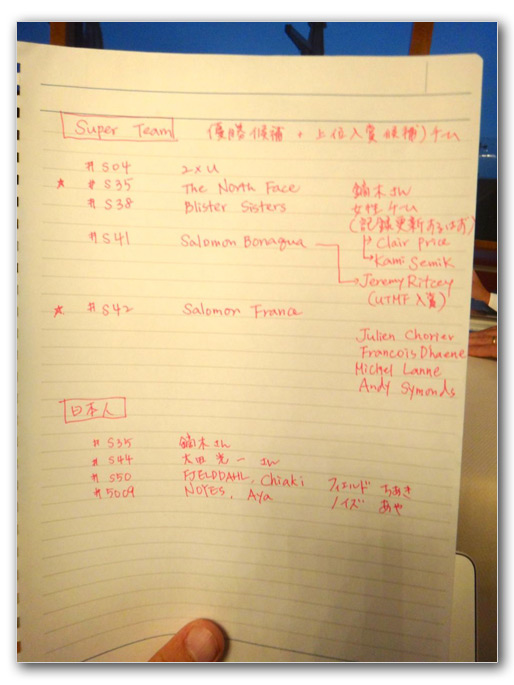 Super Team 優勝候補 + 上位入賞候補)チーム
# S04 2×U
★ # S35 The North Face 鏑木さん
# S38 Blister Sisters 女性チーム
(記録更新するはず)
Clair Price
Kami Semik
# S41 Salomon Bonaqua
Jeremy Ritcey
(UTMF入賞)
★ # S42 Salomon France
Julien Chorier
Francois Dhaene
Michel Lanne
Andy Symonds
日本人
# S35 鏑木さん
# S44 大田光一さん
# S50 FJELDDAHL, Chiaki フィエルド ちあき
# 5009 NOYES, Aya ノイズ あや